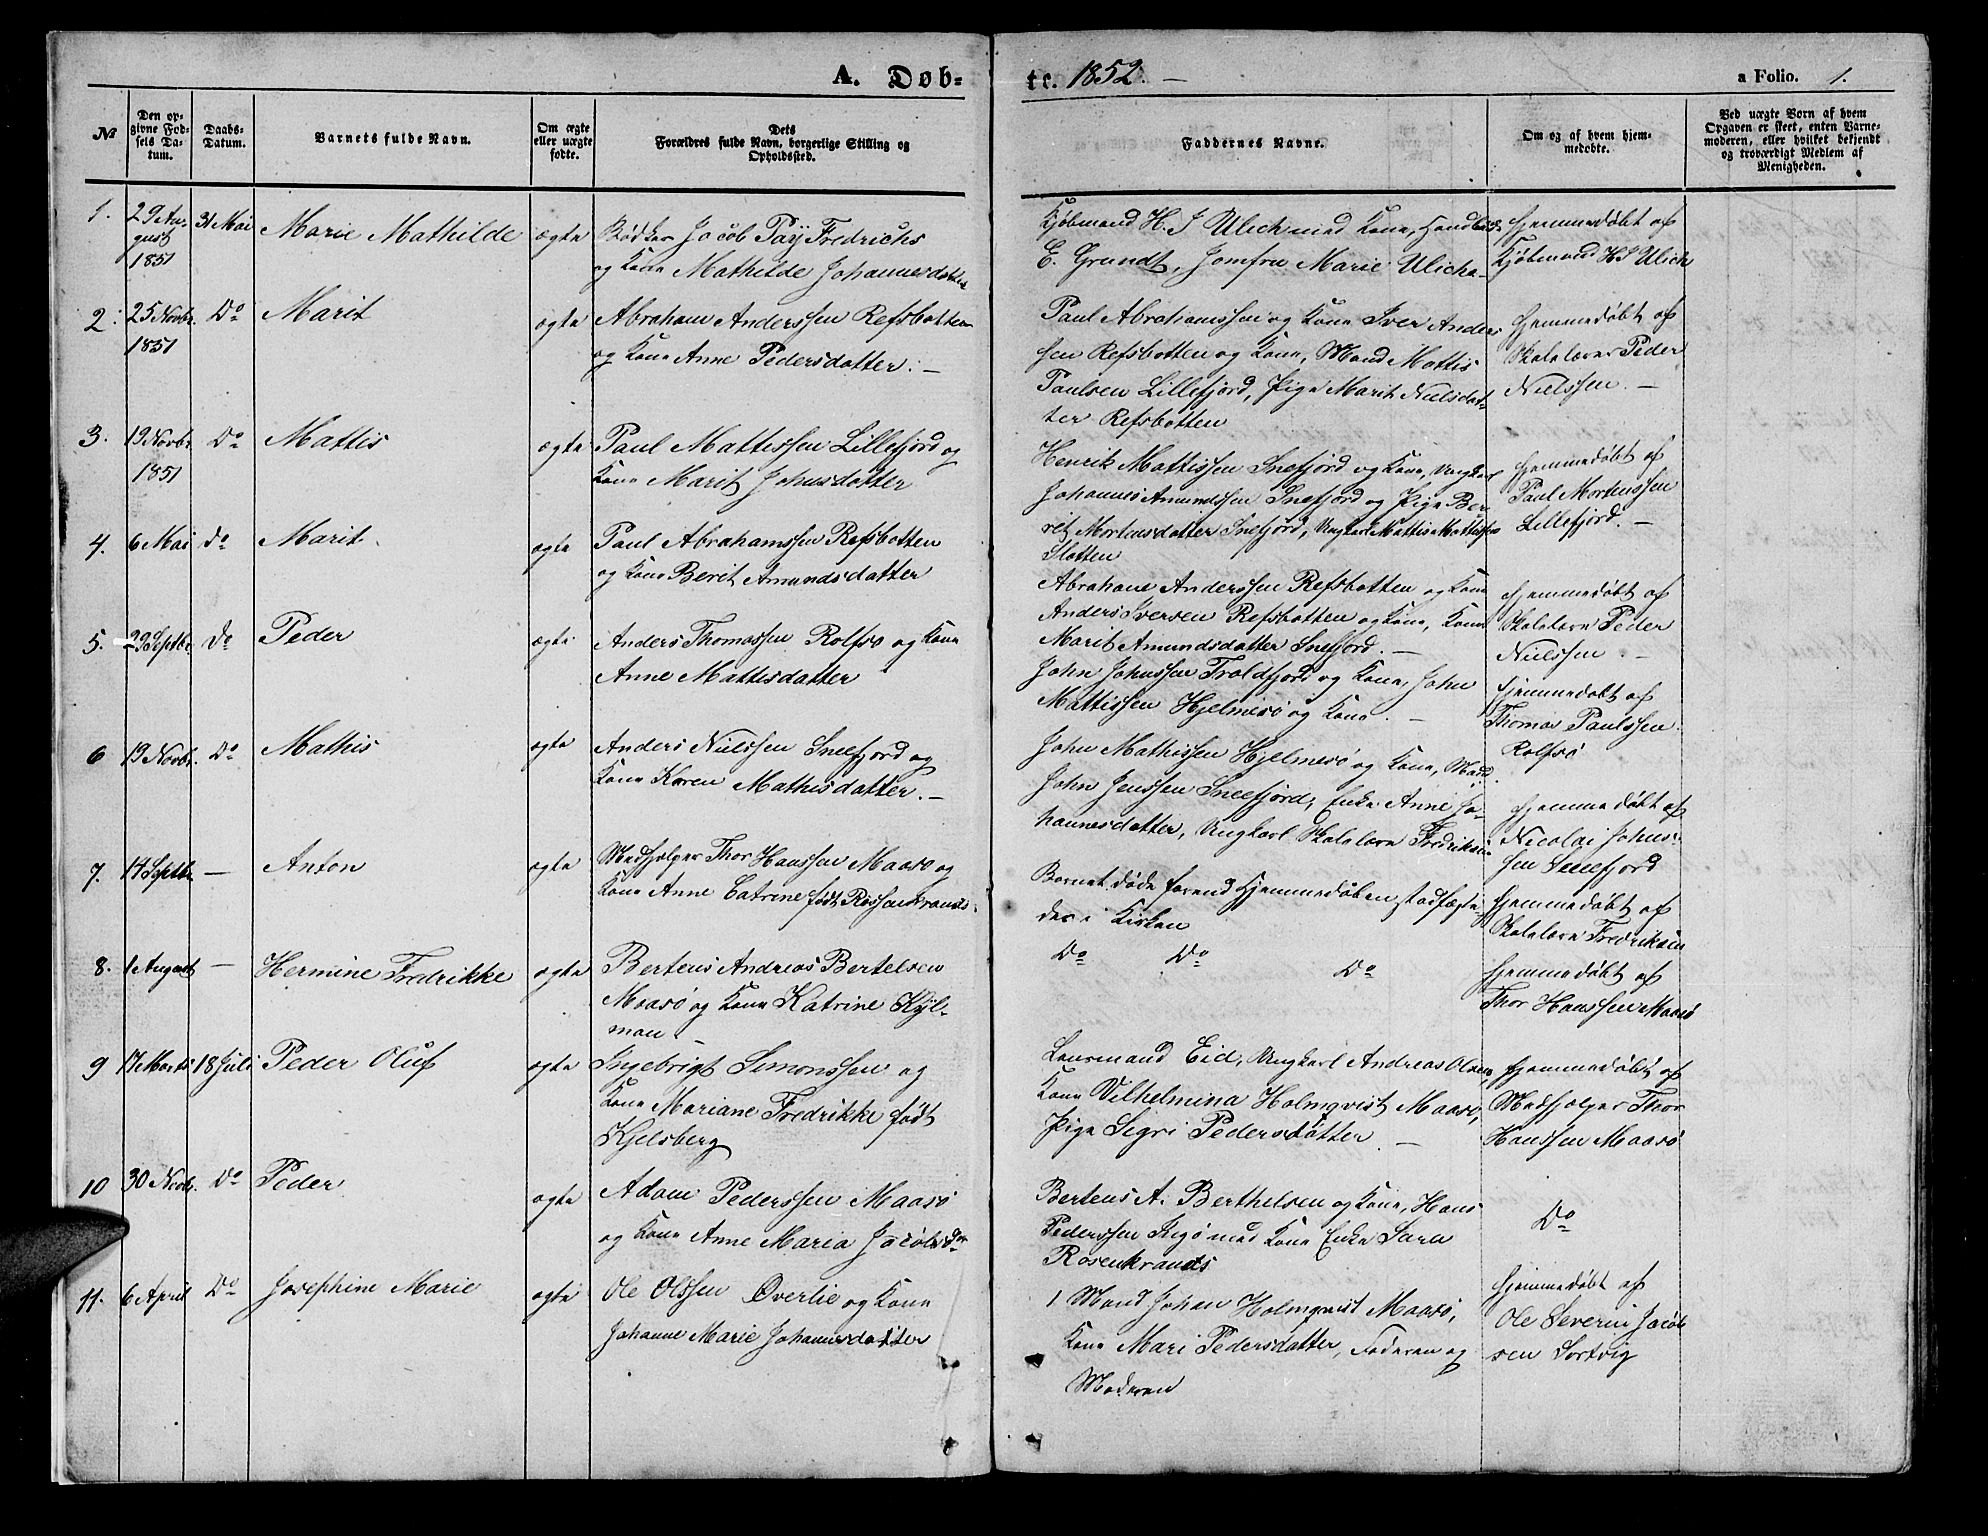 A. Døb-
te. 1852. —
a Folio. 1.
№
Den op-
givne Fød-
sels Da-
tum.
Daabs-
Datum.
Barnets fulde Navn.
Om ægte
eller uægte
fødte.
Dets
Forældres fulde Navn, borgerlige Stilling og
Opholdssted.
Faddernes Navne.
Om og af hvem hjem-
medøbte.
Ved uægte Børn af hvem
Opgaven er skeet, enten Barne-
moderen, eller hvilket bekjendt
og troværdigt Medlem af
Menigheden.
1.
29 Au-
gust
1851
31 Mai
Marie Mathilde
ægte
Bødker Jacob Pay Fredrichs
og Kone Mathilde Johannesdatter
Kjøbmand H. J Ulich med Kone, Handlende
E. Grundt, Jomfru Marie Ulich
Hjemmedøbt af
Kjøbmand HJ Ulich
2.
25 Novbr.
1851
Do
Marit
ægte
Abraham Anderssen Refsbotten
og Kone Anne Pedersdatter. —
Paul Abrahamssen og Kone Iver Ander
sen Refsbotten og Kone, Mand Mattis
Paulsen Lillefjord, Pige Marit Nielsdat-
ter Refsbotten
Hjemmedøbt af
Skolelærer Peder
Nielssen. —
3.
19 Novbr.
1851
Do
Mattis
ægte
Paul Mattissen Lillefjord og
Kone Marit Johnsdatter
Henrik Mattissen Snefjord og Kone, Ungkarl
Johannes Amundssen Snefjord og Pige Be-
ret Mortensdatter Snefjord, Ungkarl Mattis Mathissen
Slotten
Hjemmedøbt af
Paul Mortenssen
Lillefjord. —
4.
6 Mai
do
Marit.
ægte
Paul Abrahamssen Refsbotten
og Kone Berit Amundsdatter
Abraham Anderssen Refsbotten og Kone
Anders Iversen Refsbotten og Kone, Kone
Marit Amundsdatter Snefjord. —
Hjemmedøbt af
Skolelærer Peder
Nielssen. —
5.
Septbr.
Do
Peder
ægte
Anders Thomassen Rolfsø og Kone
Anne Mattisdatter
John Johnssen Troldfjord og Kone, John
Mattissen Hjelmesø og Kone. —
Hjemmedøbt af
Thomas Paulssen
Rolfsø
6
19 Novbr.
Do
Mathis
ægte
Anders Nielssen Sneefjord og
Kone Karen Mathisdatter. —
John Mathissen Hjelmesø og Kone, Mand
John Jenssen Sneefjord, Enke Anne Jo-
hannesdatter, Ungkarl Skolelærer Fredriksen
Hjemmedøbt af
Nicolai Johns-
sen Sneefjord
7.
14 Septbr.
—
Anton
ægte
Medhjelper Thor Hanssen Maasø og
Kone Anne Catrine født Rosenkrands.
Barnet døde førend Hjemmedaaben stadfæste-
des i Kirken
Hjemmedøbt af
Skolelærer Fredriksen
8.
1 August
—
Hermine Fredrikke
ægte
Bertens Andreas Bertelsen
Maasø og Kone Katrine Kyl-
man —
Do Do Do
Hjemmedøbt af
Thor Hanssen Maasø
9
17 Marts
18 Juli
Peder Oluf
ægte
Ingebrigt Simonssen og
Kone Mariane Fredrikke født
Kjelsberg
Lensmand Eid, Ungkarl Andreas Olsen
Kone Vilhelmina Holmqvist Maasø,
Pige Segri Pedersdatter —
Hjemmedøbt af
Medhjelper Thor
Hanssen Maasø
10
30 Novbr.
Do
Peder
ægte
Adam Pederssen Maasø
og Kone Anne Maria Jacobsdr
Bertens A. Berthelsen og Kone, Hans
Pederssen Ingø med Kone Enke Sara
Rosenkrands
Do
11.
6 April
Do
Josephine Marie
ægte
Ole Olssen Øverlie og Kone
Johanne Marie Johannesdatter
1 Mand Johan Holmqvist Maasø,
Kone Mari Pedersdatter, Faderen og
Moderen
Hjemmedøbt af
Ole Severin Jacob
sen Sortvig